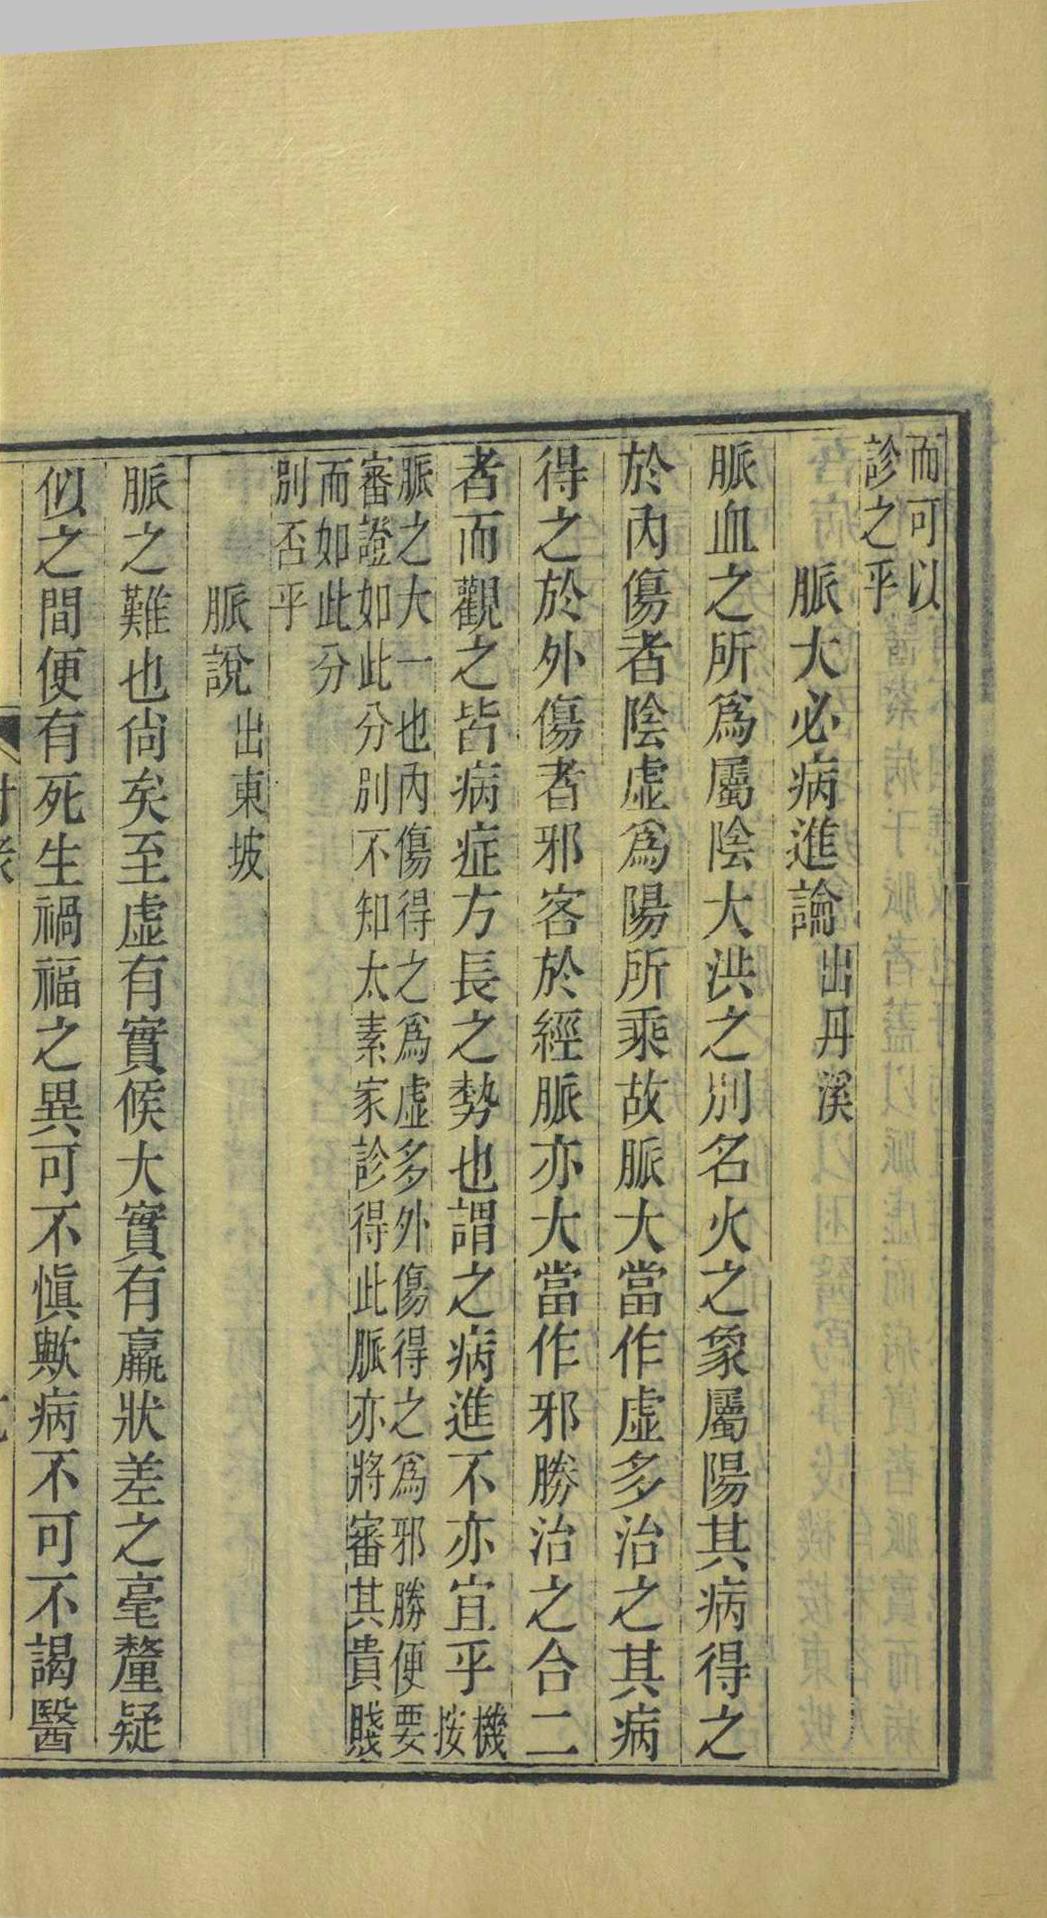 而可以
診之乎
脈大必病進論出丹溪
脈血之所爲屬陰大洪之別名火之象屬陽其病得之
於內傷者陰虛爲陽所乘故脈大當作虛多治之其病
得之於外傷者邪客於經脈亦大當作邪勝治之合二
者而觀之皆病症方長之勢也謂之病進不亦宜乎機按
脈之大一也內傷得之爲虛多外傷得之爲邪勝便要
審證如此分別不知太素家診得此脈亦將審其貴賤
而如此分
別否乎
脈說出東坡
脈之難也尙矣至虛有實候大實有羸狀差之毫釐疑
似之間便有死生禍福之異可不愼歟病不可不謁醫